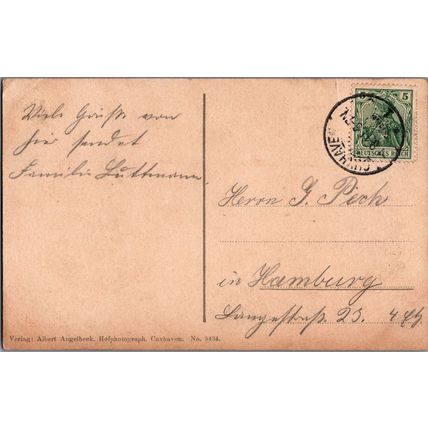 Viele Grüße von
hier sendet
Familie Luttmann
5
DEUTSCHES REICH
CUXHAVEN
Herrn G. Pech
in Hamburg
Langestraß. 23. 4
Verlag: Albert Angelbeck, Hofphotograph. Cuxhaven. No. 5434.